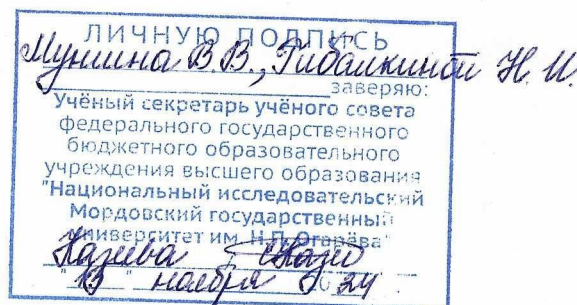 ЛИЧНУЮ ПОДПИСЬ
Мунина В.В., Гибалкиной Н.И.
заверяю:
Учёный секретарь учёного совета
федерального государственного
бюджетного образовательного
учреждения высшего образования
"Национальный исследовательский
Мордовский государственный
университет им. Н.П. Огарёва"
"13" ноября 20 24 г.